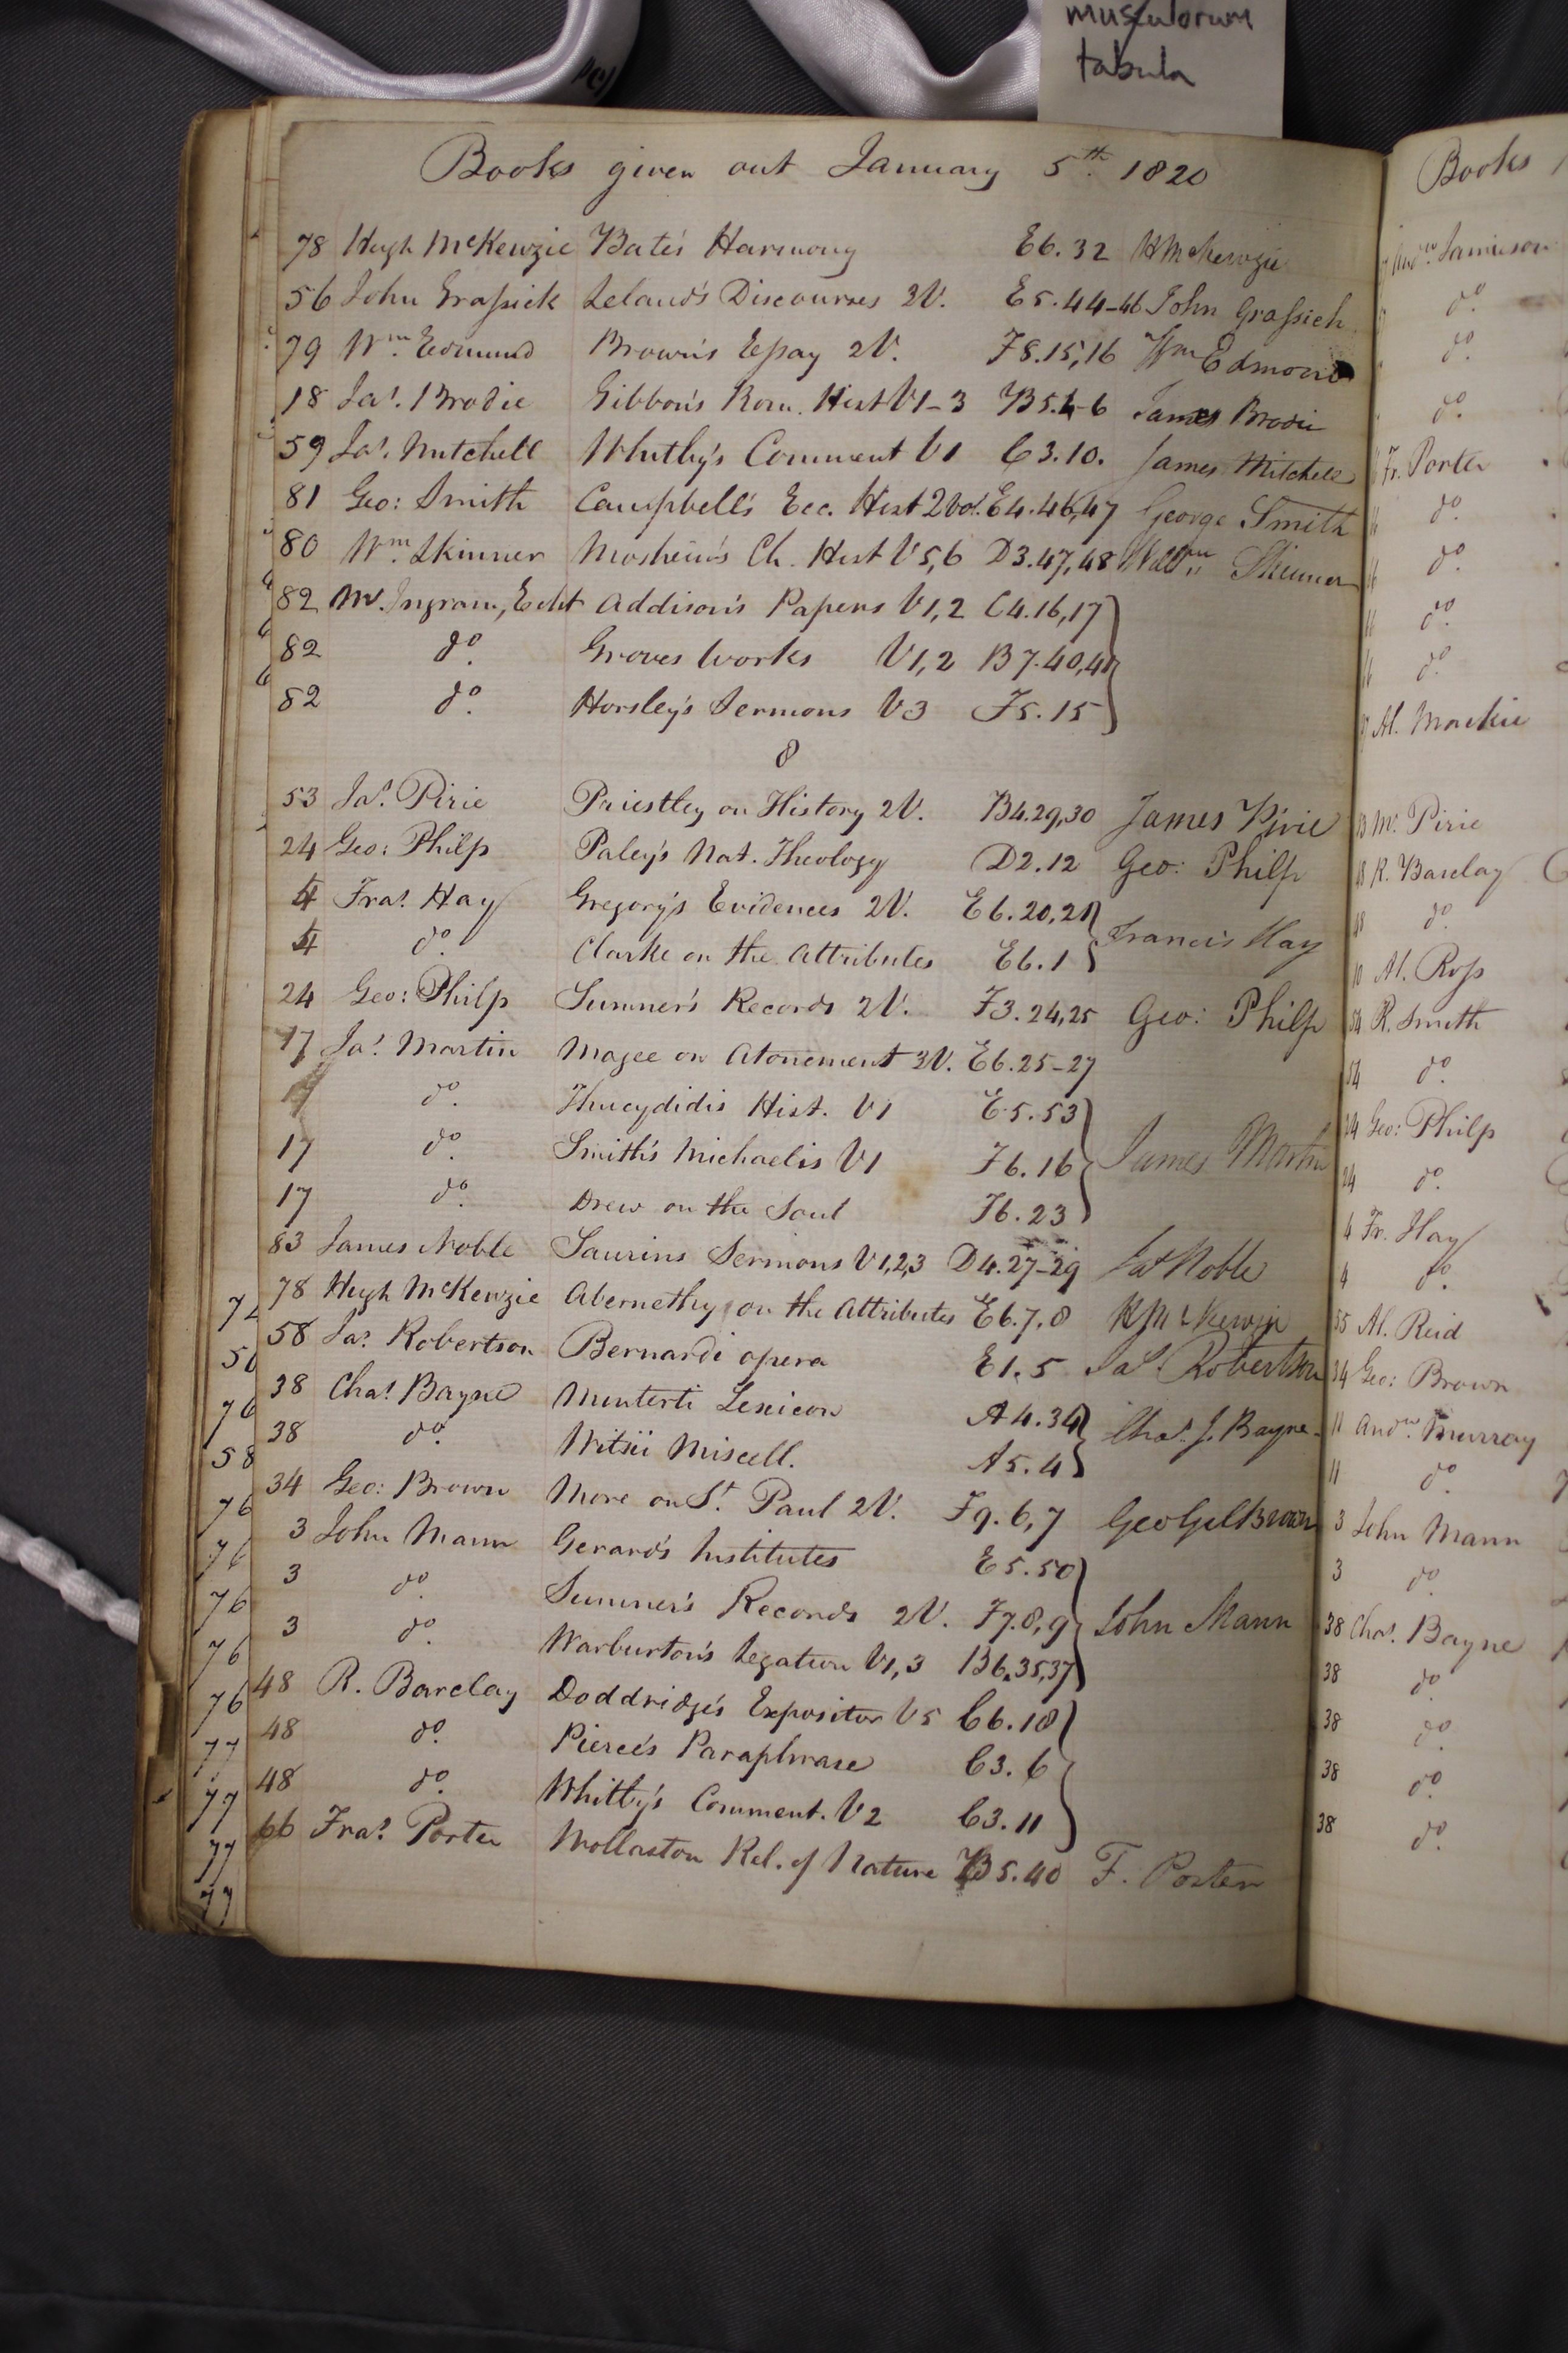 musculorum
tabula
Books given out January 5th. 1820
78 Hugh McKenzie Bate's Harmony E6.32 H McKenzie
56 John Grassick Leland's Discourses 3V. E5.44-46 John Grassick
79 Wm. Edmund Brown's Essay 2V. F8.15,16 Wm Edmond
18 Jas. Brodie Gibbon's Rom. Hist V1-3 B5.4-6 James Brodie
59 Jas. Mitchell Whitby's Comment V1 C3.10. James Mitchell
81 Geo: Smith Campbell's Ecc. Hist 2Vol. E4.46,47 George Smith
80 Wm. Skinner Mosheim's Ch. Hist V5,6 D3.47,48 Willm Skinner
82 Mr. Ingram, Echt Addison's Papers V1,2 C4.16,17
82 do. Groves Works V1,2 B7.40,41
82 do. Horsley's Sermons V3 F5.15
8
53 Jas. Pirie Priestley on History 2V. B4.29,30 James Pirie
24 Geo: Philp Paley's Nat. Theology D2.12 Geo: Philp
4 Fras. Hay Gregory's Evidences 2V. E6.20,21 Francis Hay
4 do. Clarke on the Attributes E6.1
24 Geo: Philp Sumner's Records 2V. F3.24,25 Geo: Philp
17 Jas. Martin Magee on Atonement 3V. E6.25-27
17 do. Thucydidis Hist. V1 E5.53
17 do. Smith's Michaelis V1 F6.16 James Martin
17 do. Drew on the Soul F6.23
83 James Noble Saurins Sermons V1,2,3 D4.27-29 Jas Noble
78 Hugh McKenzie Abernethy on the Attributes E6.7,8 H McKenzie
58 Jas. Robertson Bernardi opera E1.5 Jas. Robertson
38 Chas. Bayne Minterti Lexicon A4.34 Chas. J. Bayne
38 do. Witsii Miscell. A5.4
34 Geo: Brown More on St. Paul 2V. F9.6,7 Geo Gil Brown
3 John Mann Gerard's Institutes E5.50
3 do. Sumner's Records 2V. F7.8,9 John Mann
3 do. Warburton's Legation V1,3 B6.35,37
48 R. Barclay Doddridge's Expositor V5 C6.18
48 do. Pierce's Paraphrase C3.6
48 do. Whitby's Comment. V2 C3.11
66 Fras. Porter Wollaston Rel. of Nature B5.40 F. Porter
50
76
58
76
76
76
76
76
77
77
77
77
Books
Andw. Jamieson
do.
do.
do.
Fr. Porter
do.
do.
do.
do.
Al. Mackie
Mr. Pirie
R. Barclay
do.
Al. Ross
54 R. Smith
54 do.
24 Geo: Philp
24 do.
4 Fr. Hay
4 do.
55 Al. Reid
34 Geo: Brown
11 Andw. Murray
11 do.
3 John Mann
3 do.
38 Chas. Bayne
38 do.
38 do.
38 do.
38 do.